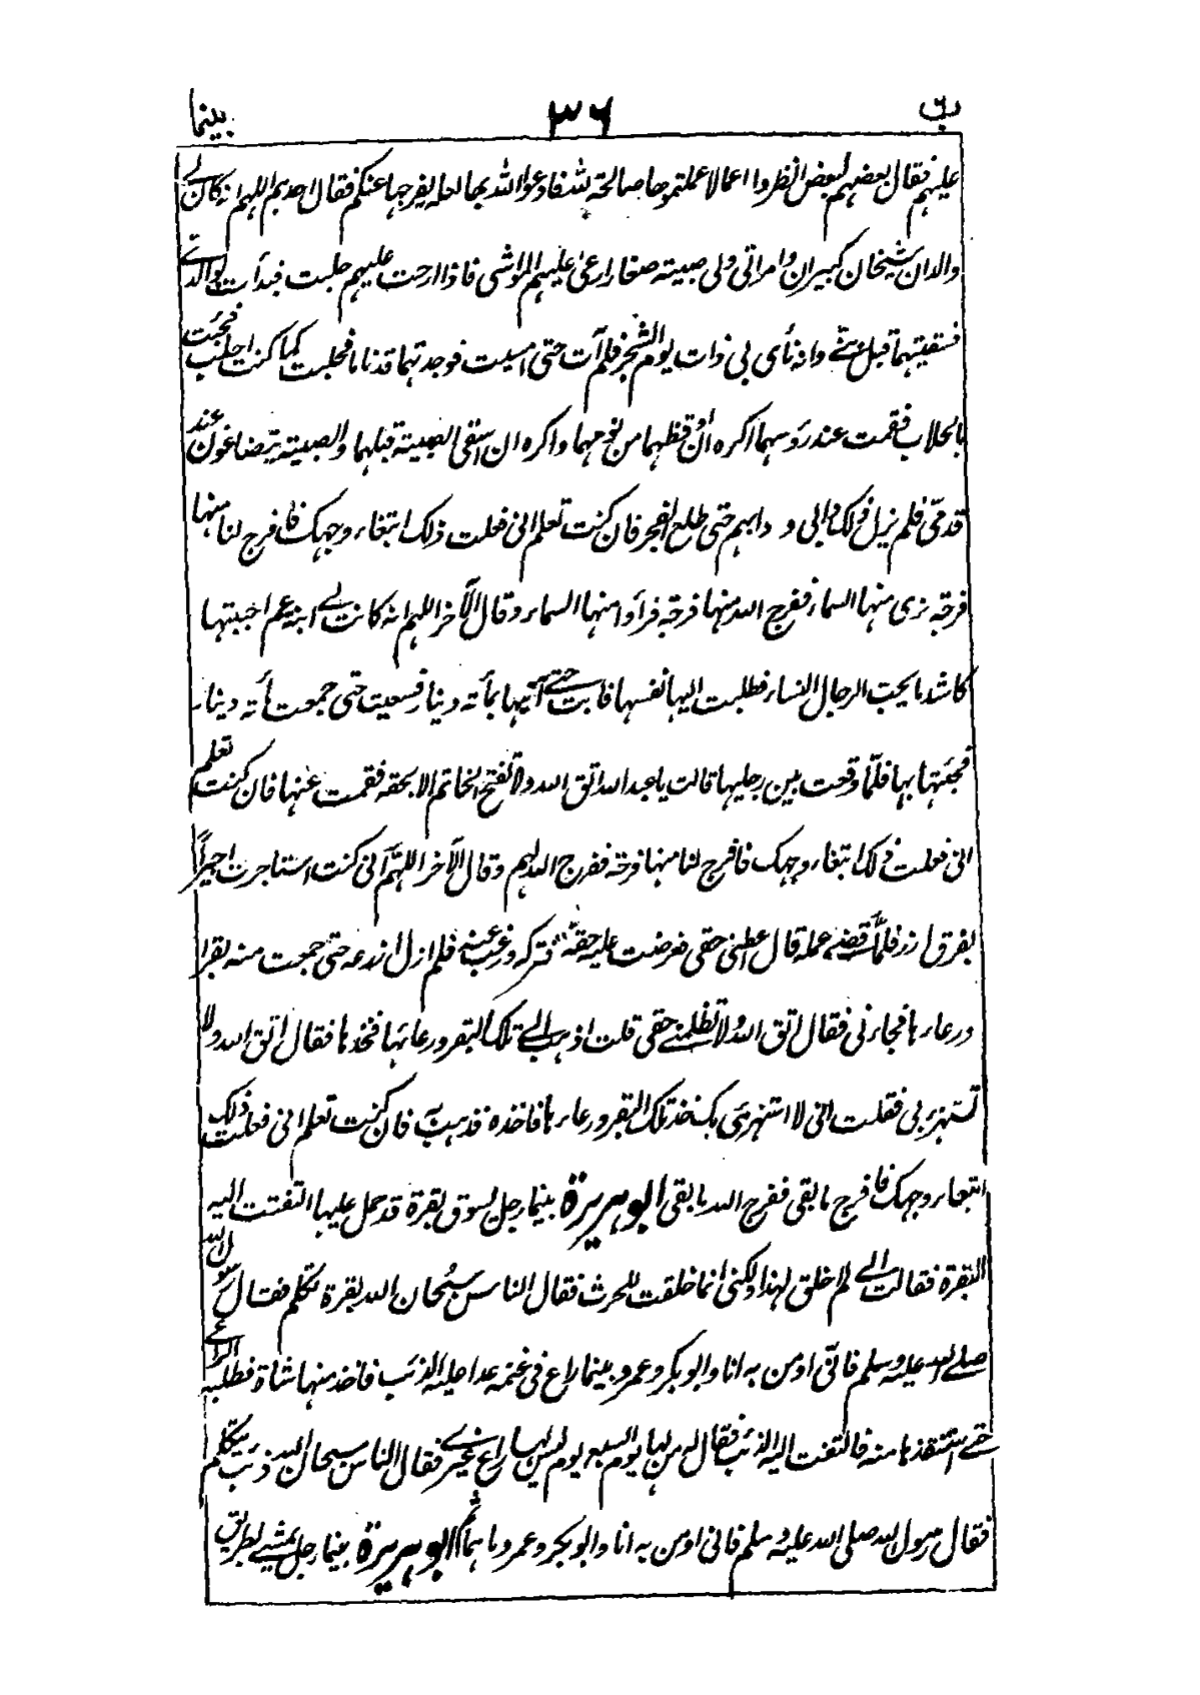 بينما ٣٦ ب
عليهم فقال بعضهم لبعض انظروا اعمالا عملتموها صالحة لله فادعوا الله بها لعله يفرجها عنكم فقال احدهم اللهم انه كان لي
والدان شيخان كبيران وامراتي ولي صبية صغار ارعى عليهم المواشي فاذا ارحت عليهم حلبت فبدأت بوالدي
فسقيتهما قبل بني وانه نأى بي ذات يوم الشجر فلم آت حتى امسيت فوجدتهما قد ناما فحلبت كما كنت احلب فجئت
بالحلاب فقمت عند رؤسهما اكره ان اوقظهما من نومهما واكره ان اسقى الصبية قبلهما والصبية يتضاغون عند
قدمي فلم يزل ذلك دابي ودابهم حتى طلع الفجر فان كنت تعلم انى فعلت ذلك ابتغاء وجهك فافرج لنا منها
فرجة نرى منها السماء ففرج الله منها فرجة فرأوا منها السماء وقال الآخر اللهم انه كانت لي ابنة عم احببتها
كاشد ما يحب الرجال النساء فطلبت اليها نفسها فابت حتى آتيها بمأته دينار فسعيت حتى جمعت مأته دينار
فجئتها بها فلما وقعت بين رجليها قالت يا عبد الله اتق الله ولا تفتح الخاتم الا بحقه فقمت عنها فان كنت تعلم
انى فعلت ذلك ابتغاء وجهك فافرج لنا منها فرجة ففرج الله لهم وقال الآخر اللهم انى كنت استاجرت اجيرا
بفرق ارز فلما قضى عمله قال اعطنى حقى فعرضت عليه حقه فتركه ورغب عنه فلم ازل ازرعه حتى جمعت منه بقرا
ورعاءها فجاءنى فقال اتق الله ولا تظلمنى حقى قلت اذهب الى تلك البقر ورعائها فخذها فقال اتق الله ولا
تستهزئ بى فقلت انى لا استهزئ بك خذ تلك البقر ورعاءها فاخذه فذهب به فان كنت تعلم انى فعلت ذلك
ابتغاء وجهك فافرج ما بقى ففرج الله ما بقى ابو هريرة بينما رجل يسوق بقرة قد حمل عليها التفتت اليه
البقرة فقالت انى لم اخلق لهذا ولكنى انما خلقت للحرث فقال الناس سبحان الله بقرة تكلم فقال رسول الله
صلى الله عليه وسلم فانى اومن به انا وابو بكر وعمر وبينما راع فى غنمه عدا عليه الذئب فاخذ منها شاة فطلبه الراعى
حتى استنقذها منه فالتفت اليه الذئب فقال له من لها يوم السبع يوم ليس لها راع غيرى فقال الناس سبحان الله ذئب يتكلم
فقال رسول الله صلى الله عليه وسلم فانى اومن به انا وابو بكر وعمر وما هما ثم ابو هريرة بينما رجل يمشى بطريق